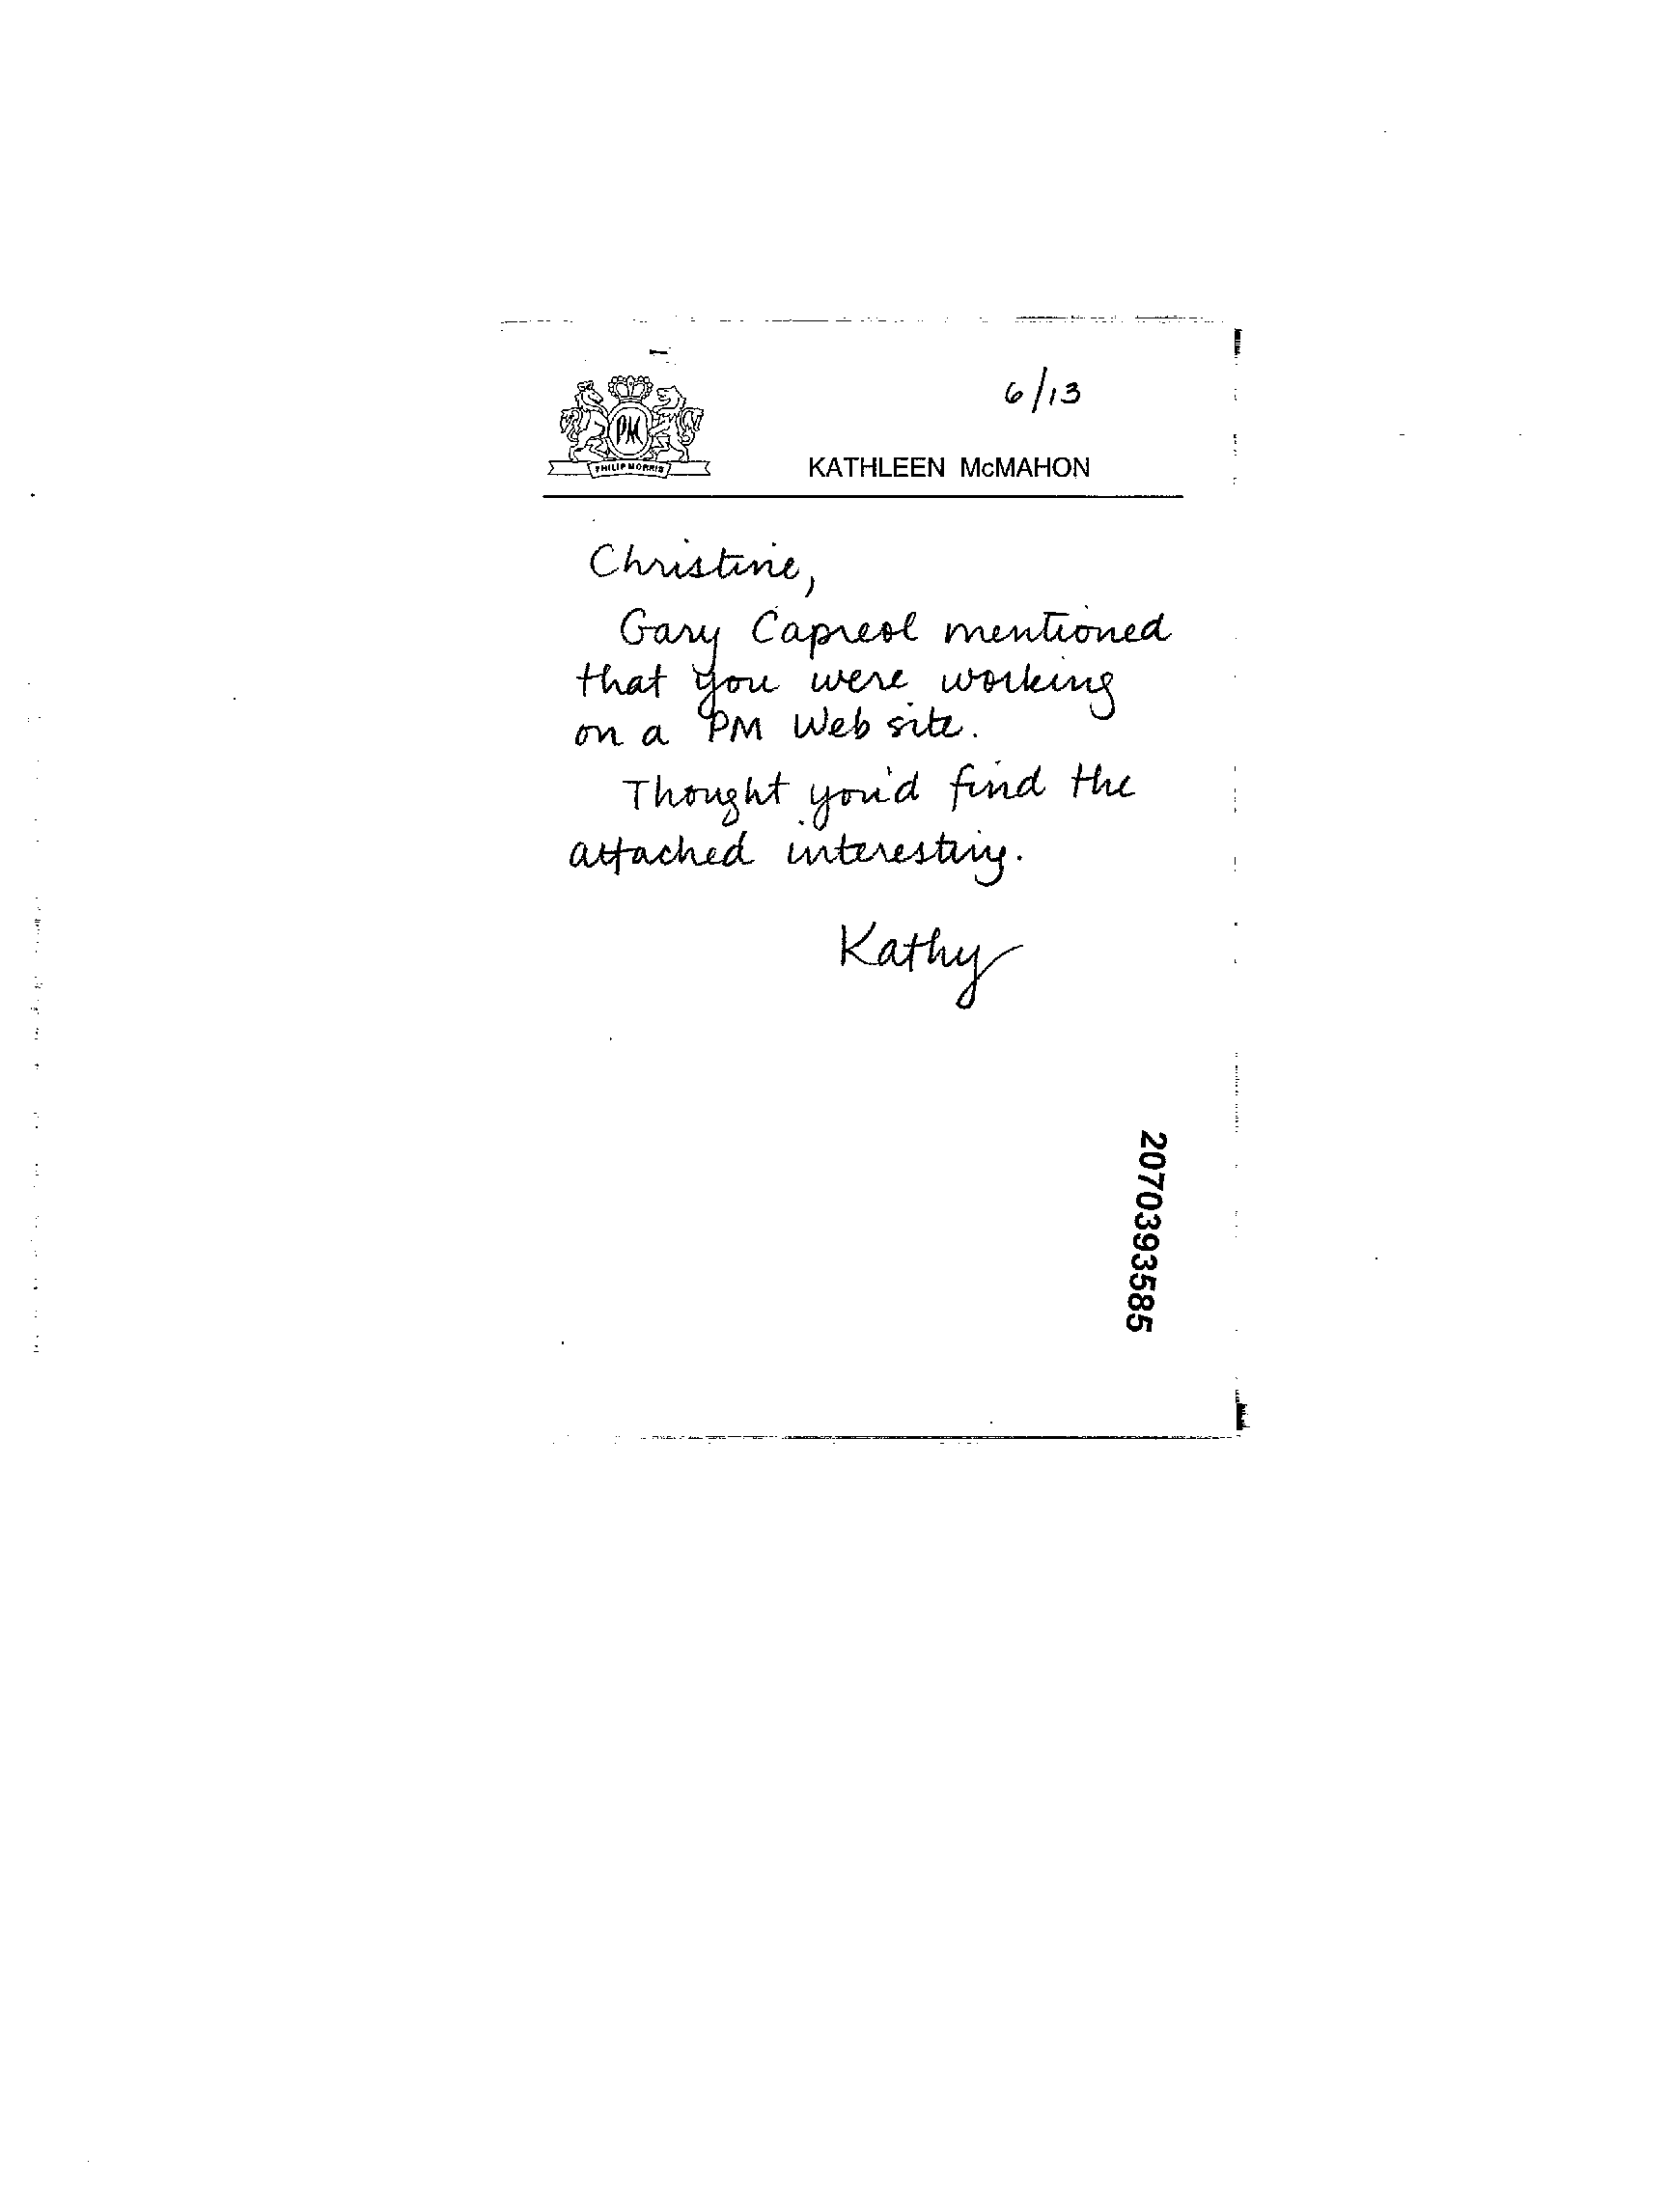 6/13
PM
PHILIP MORRIS
KATHLEEN McMAHON
Christine,
Gary Capreol mentioned
that you were working
on a PM Web site.
Thought you'd find the
attached interesting.
Kathy
2070393585